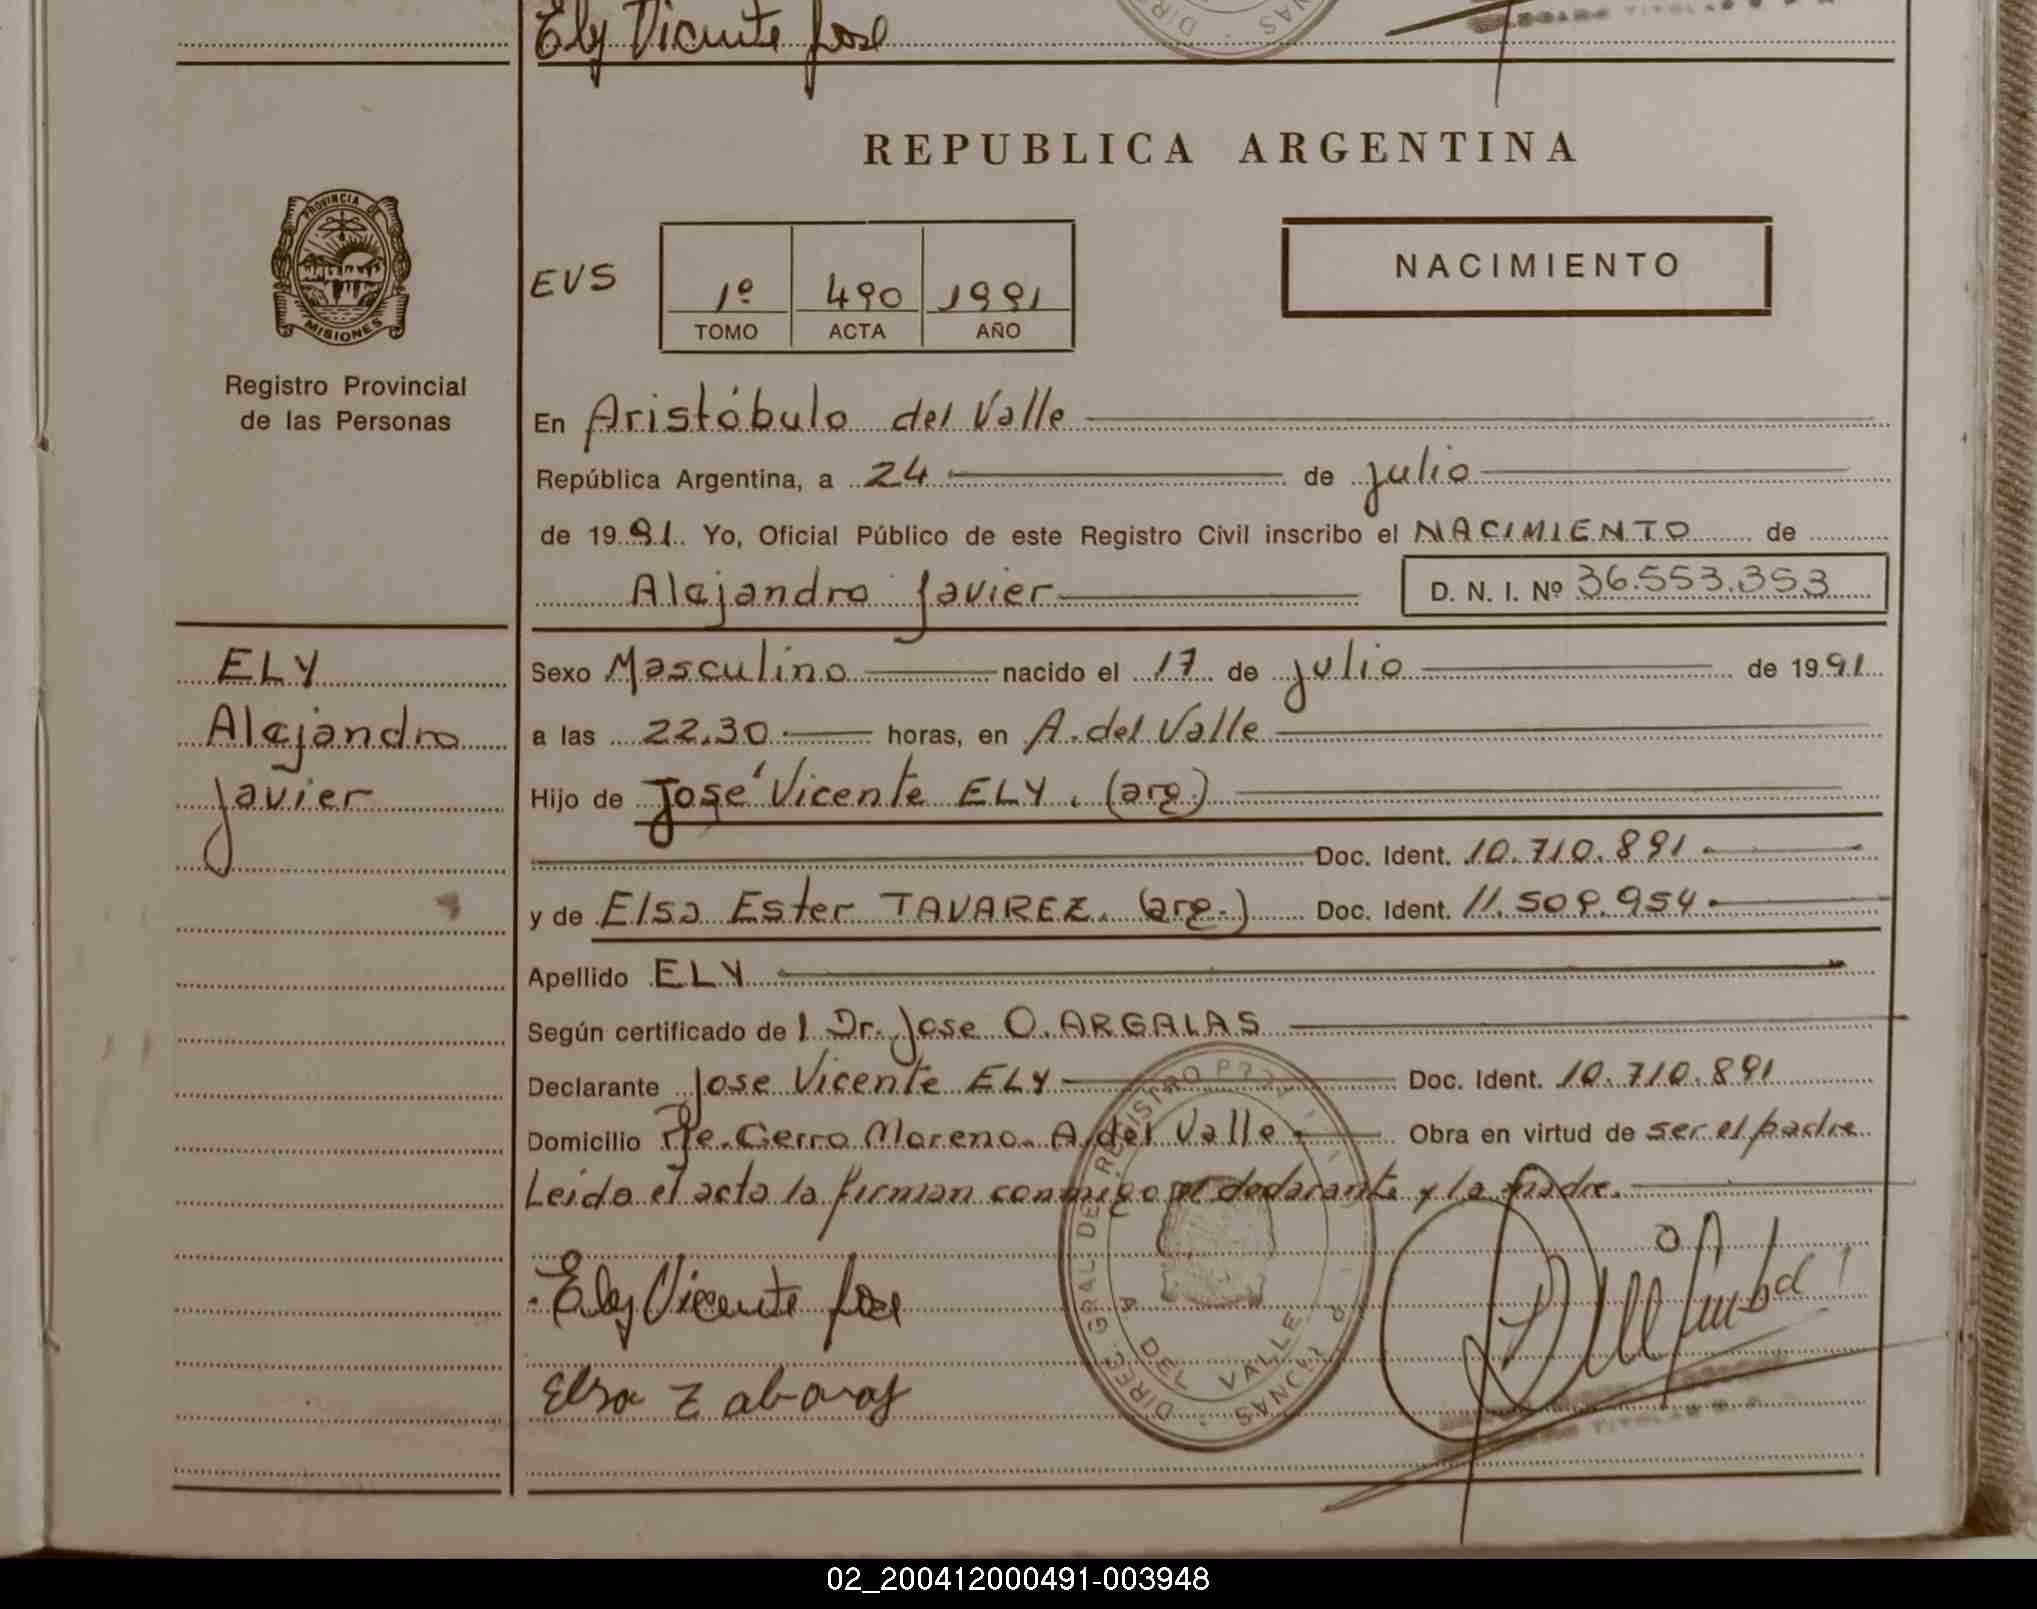 Ely Vicente José
REPUBLICA ARGENTINA
PROVINCIA DE
MISIONES
Registro Provincial
de las Personas
EVS
1º 490 1991
TOMO ACTA AÑO
NACIMIENTO
En Aristóbulo del Valle
República Argentina, a 24 de julio
de 1991 Yo, Oficial Público de este Registro Civil inscribo el NACIMIENTO de
Alejandro Javier D. N. I. Nº 36.553.353
ELY
Alejandro
Javier
Sexo Masculino nacido el 17 de julio de 1991
a las 22.30 horas, en A. del Valle
Hijo de José Vicente ELY. (arg.)
Doc. Ident. 10.710.891
y de Elsa Ester TAVAREZ. (arg.) Doc. Ident. 11.509.954
Apellido ELY
Según certificado de l Dr. Jose O. ARGALAS
Declarante Jose Vicente ELY Doc. Ident. 10.710.891
Domicilio Pje. Cerro Moreno. A. del Valle Obra en virtud de ser el padre
Leida el acta la firman conmigo el declarante y la madre.
Ely Vicente José
Elsa
DIREC. GRAL. DE REGISTRO
A. DEL VALLE
02_200412000491-003948